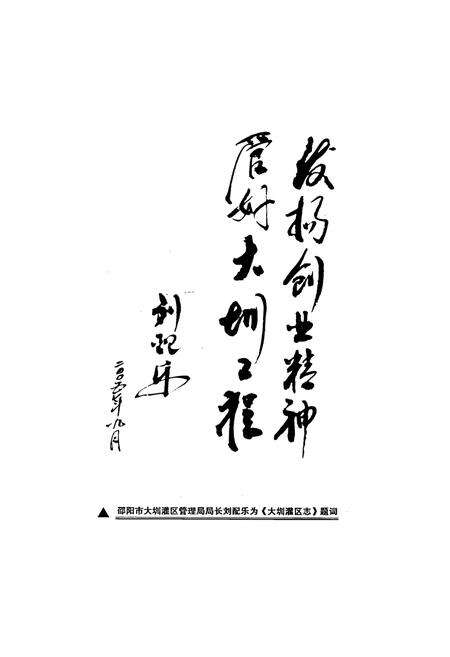 发扬创业精神
管好大圳工程
刘配乐
二〇〇五年八月
▲ 邵阳市大圳灌区管理局局长刘配乐为《大圳灌区志》题词